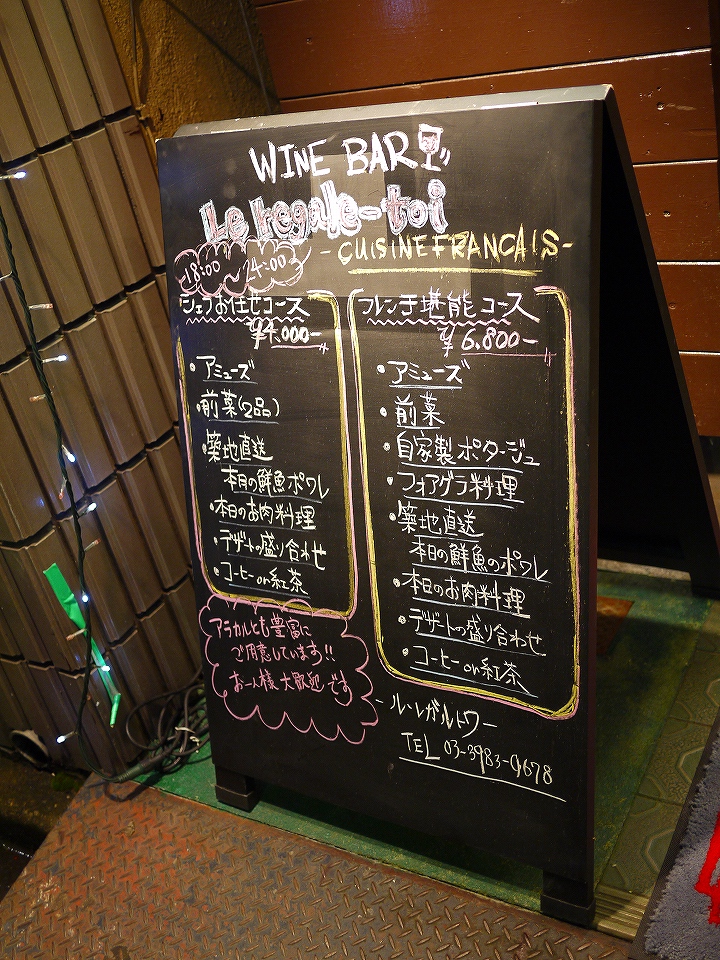 WINE BAR
Le regale-toi
- CUISINE FRANCAIS -
18:00〜24:00
シェフお任せコース
¥4.000-
・アミューズ
・前菜(2品)
・築地直送
本日の鮮魚ポワレ
・本日のお肉料理
・デザートの盛り合わせ
・コーヒーor紅茶
アラカルトも豊富に
ご用意しています!!
お一人様大歓迎です
フレンチ堪能コース
¥6.800-
・アミューズ
・前菜
・自家製ポタージュ
・フォアグラ料理
・築地直送
本日の鮮魚のポワレ
・本日のお肉料理
・デザートの盛り合わせ
・コーヒーor紅茶
-ル・レガルトワー
TEL 03-3983-9678